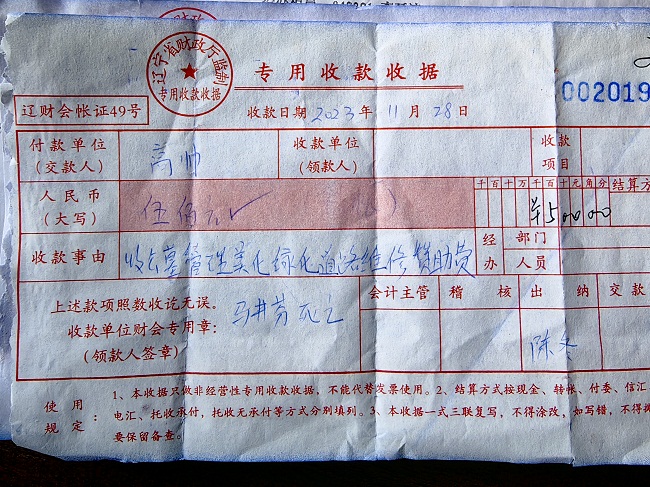 辽宁省财政厅监制
专用收款收据
专用收款收据
002019
辽财会帐证49号
收款日期 2023 年 11 月 28 日
付款单位
(交款人)
高帅
收款单位
(领款人)
收款
项目
人民币
(大写)
伍佰元
千百十万千百十元角分
结算方
¥50000
收款事由
收公墓管理美化绿化道路维修赞助费
经办
部门
人员
上述款项照数收讫无误。
收款单位财会专用章:
(领款人签章)
马井芳死亡
会计主管
稽核
出纳
交款
陈冬
使用规定:
1、本收据只做非经营性专用收款收据,不能代替发票使用。2、结算方式按现金、转帐、付委、信汇
电汇、托收承付,托收无承付等方式分别填列。3、本收据一式三联复写,不得涂改,如写错,不得撕
要保留备查。